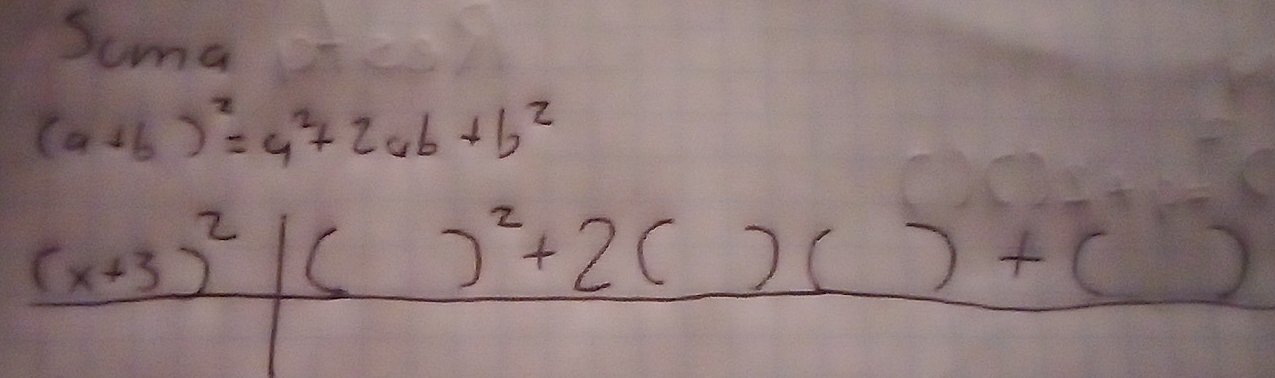 Suma
(a+b)²=a²+2ab+b²
(x+3)² | ( )²+2( )( )+( )